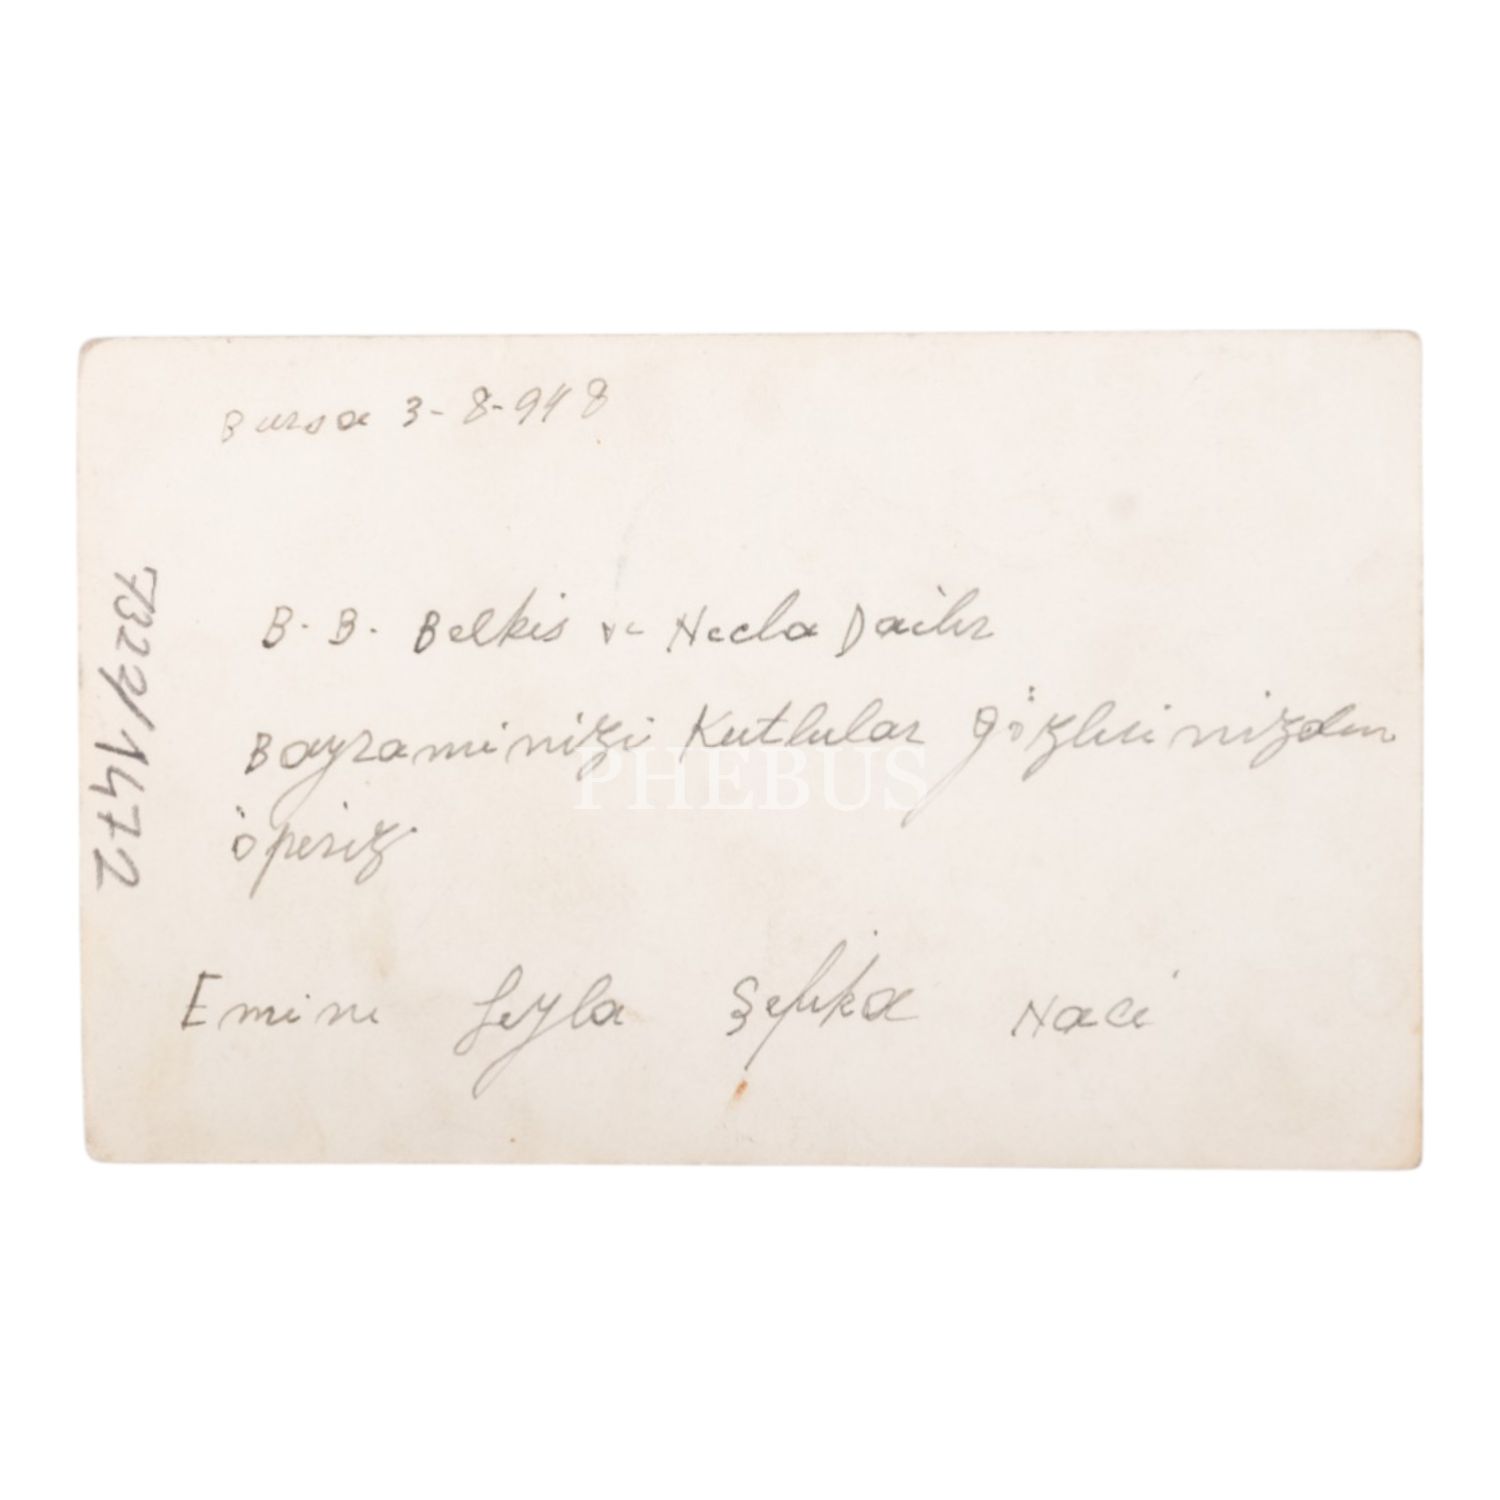 Bursa 3-8-948
B. B. Belkis ve Necla Dailer
Bayraminizi Kutlular gözlerinizden
öperiz
Emine Leyla Şefika Naci
7322/1472
PHEBUS